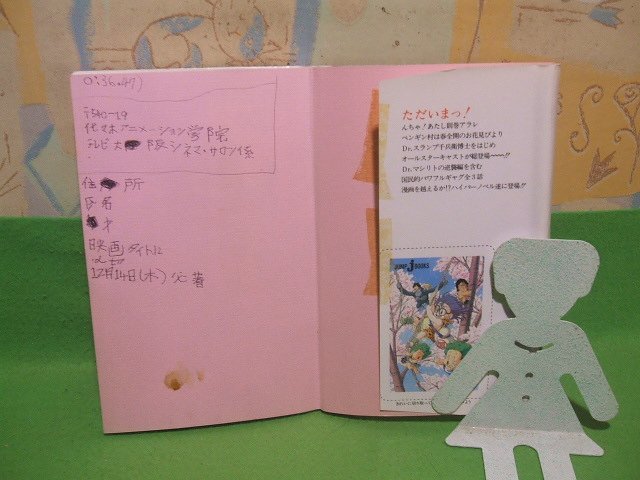 〒540-19
代々木アニメーション学院
テレビ大阪シネマ・サロン係
住所
氏名
才
映画タイトル
12月14日(木)必着
ただいまっ!
んちゃ!あたし則巻アラレ
ペンギン村は春全開のお花見びより
Dr.スランプ千兵衛博士をはじめ
オールスターキャストが総登場〜〜!!
Dr.マシリトの逆襲編を含む
国民的パワフルギャグ全3話
漫画を越えるか!?ハイパーノベル遂に登場!!
JUMP J BOOKS